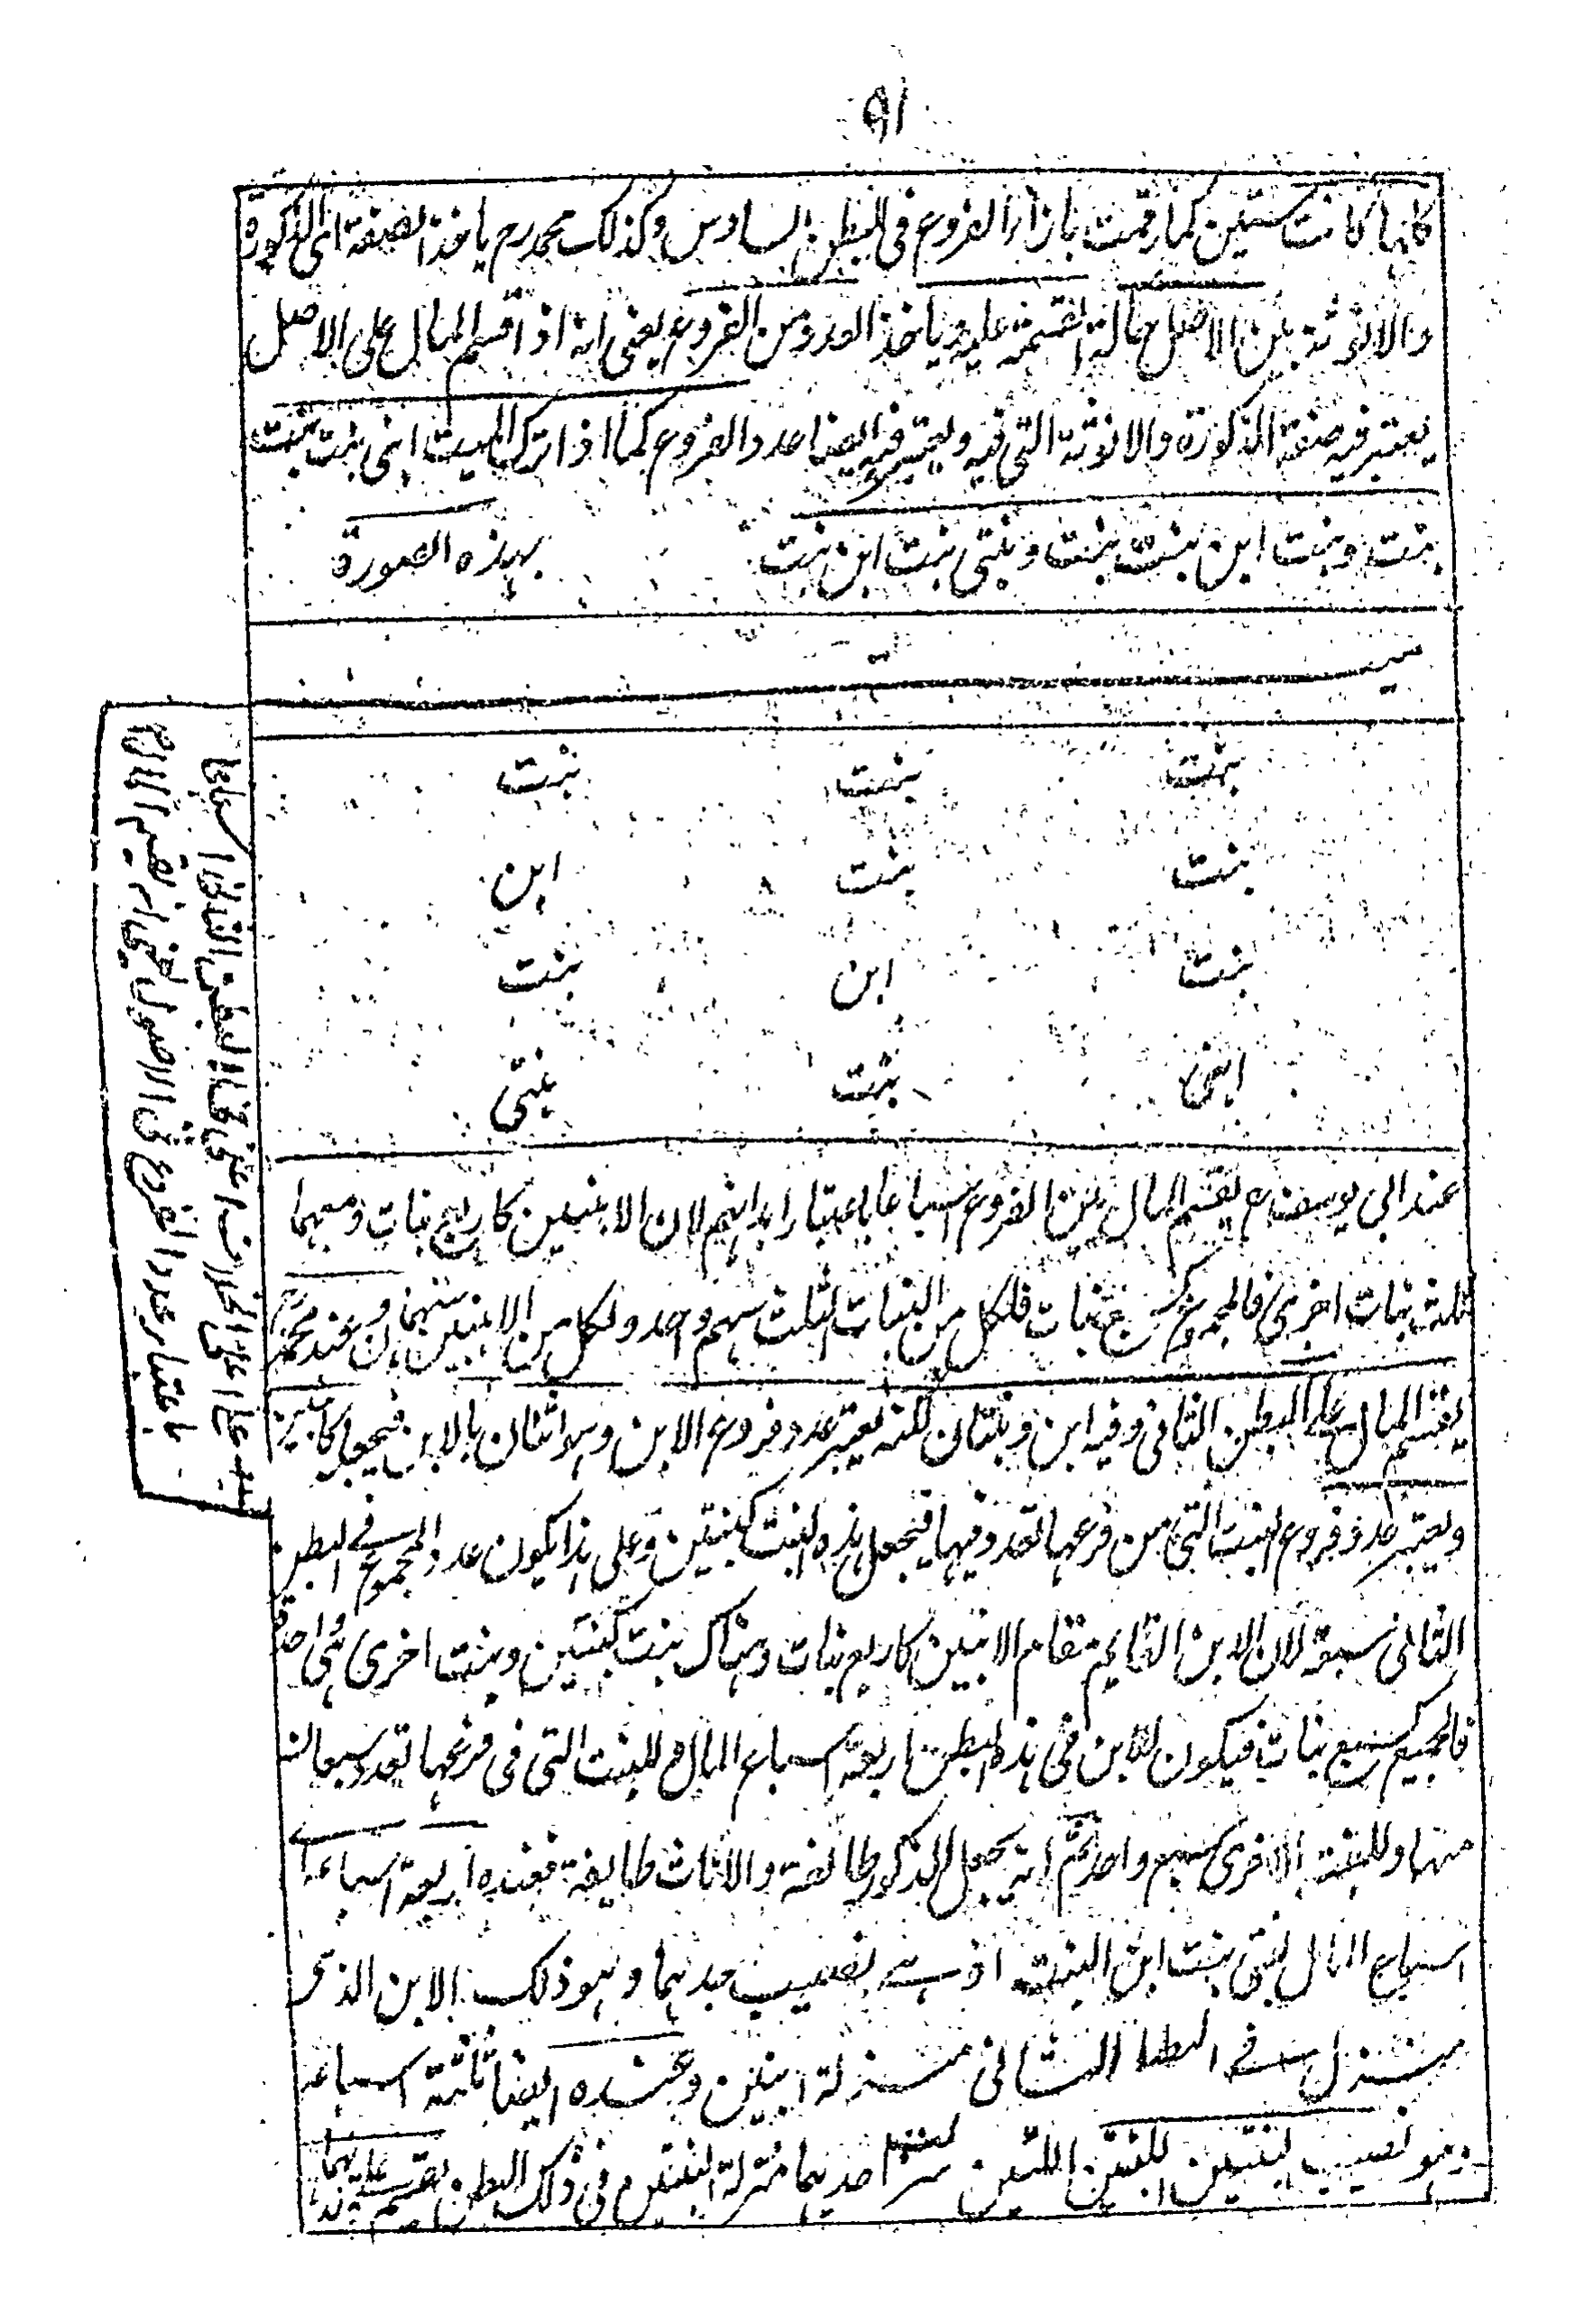 ٩١
كانها كانت ستين كما رقمت بازاء الفروع فى البطن السادس وكذلك محمد رح ياخذ الصفة اى الذكورة
والانوثة من الاصل حالة القسمة عليه وياخذ العدد من الفروع يعنى انه اذا قسم المال على الاصل
يعتبر فيه صفة الذكورة والانوثة التى فيه ويعتبر فيه ايضا عدد الفروع كما اذا ترك الميت ابنى بنت بنت
بنت وبنت ابن بنت بنت وبنتى بنت ابن بنت بهذه الصورة
بنت بنت بنت
بنت بنت ابن
بنت ابن بنت
ابنى بنت بنتى
عند ابى يوسف رح يقسم المال بين الفروع اسباعا باعتبار ابدانهم لان الابنين كاربع بنات ومعهما
ثلث بنات اخرى فالمجموع كسبع بنات فلكل من البنات الثلث سهم واحد ولكل من الابنين سهمان وعند محمد رح
يقسم المال على البطن الثانى وفيه ابن وبنتان لكنه يعتبر عدد فروع الابن وهو اثنان بالابن فيجعل كابنين
ويعتبر عدد فروع البنت التى من فرعها تعدد فيها فيجعل هذه البنت كبنتين وعلى هذا يكون عدد المجموع فى البطن
الثانى سبعة لان الابن القايم مقام الابنين كاربع بنات وهناك بنت كبنتين وبنت اخرى هى واحدة
فالجميع كسبع بنات فيكون للابن فى هذا البطن اربعة اسباع المال وللبنت التى فى فرعها تعدد سبعان
منها وللبنت الاخرى سبع واحد ثم انه يجعل الذكور طائفة والاناث طايفة فعنده اربعة اسباع
اسباع المال لبنتى بنت ابن البنت اذ هى نصيب جدهما وهو ذلك الابن الذى
منزل فى البطن الثانى منزلة ابنين وعنده ايضا ثلثة اسباعه
وهو نصيب البنتين للبنتين اللتين احديهما منزلة البنتين فى ذلك البطن يقسم على
باعتبار عدد الفروع فى الاصول